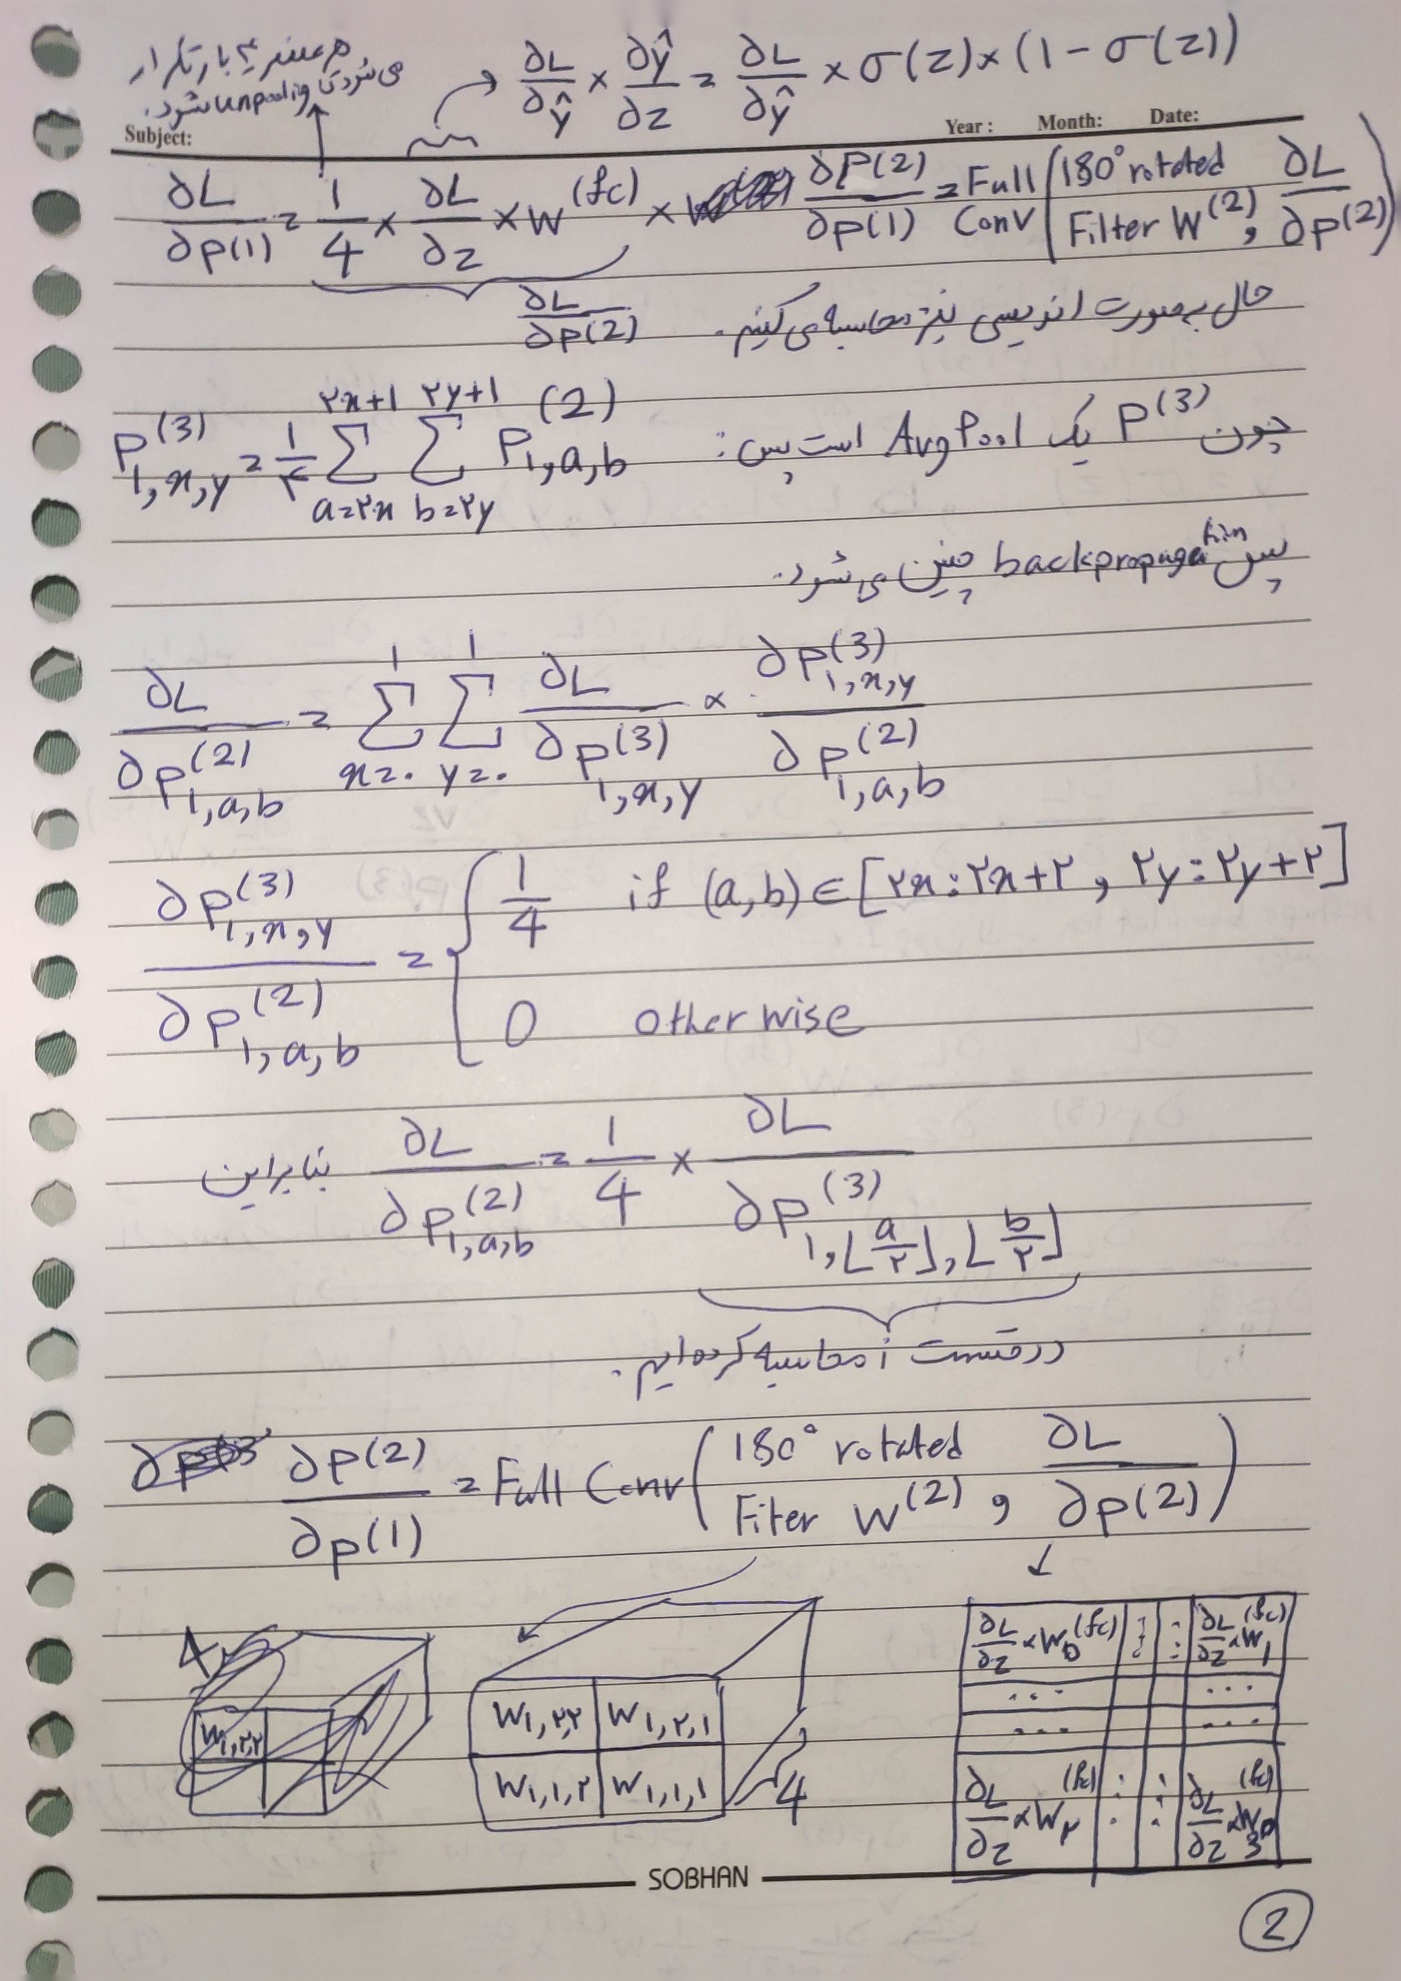 هر عنصر ۴ بار تکرار
می‌شود تا unpooling شود.
∂L/∂ŷ × ∂ŷ/∂z = ∂L/∂ŷ × σ(z) × (1 - σ(z))
Subject: Year: Month: Date:
∂L/∂p(1) = 1/4 × ∂L/∂z × W^(fc) × ∂P(2)/∂p(1) = Full Conv (180° rotated Filter W^(2), ∂L/∂p(2))
∂L/∂p(2)
حال به صورت اندیسی نیز محاسبه می‌کنیم.
چون P^(3) یک Avg Pool است پس:
P^(3)_1,x,y = 1/۴ Σ_{a=۲x}^{۲x+1} Σ_{b=۲y}^{۲y+1} P^(2)_1,a,b
پس backpropagation چنین می‌شود:
∂L/∂p^(2)_1,a,b = Σ_{x=۰}^{1} Σ_{y=۰}^{1} ∂L/∂p^(3)_1,x,y × ∂p^(3)_1,x,y/∂p^(2)_1,a,b
∂p^(3)_1,x,y/∂p^(2)_1,a,b = { 1/4 if (a,b) ∈ [۲x:۲x+۲, ۲y:۲y+۲]
0 otherwise
بنابراین ∂L/∂p^(2)_1,a,b = 1/4 × ∂L/∂p^(3)_1,⌊a/۲⌋,⌊b/۲⌋
در قسمت i محاسبه کرده‌ایم.
∂p(2)/∂p(1) = Full Conv (180° rotated Fiter W^(2), ∂L/∂p(2))
4
W1,۲,۲
W1,۲,۲ W1,۲,1
W1,1,۲ W1,1,1
4
∂L/∂z × W_0^(fc) ⋮ ⋮ ∂L/∂z × W_1^(fc)
... ...
... ...
∂L/∂z × W_۲^(fc) ⋮ ⋮ ∂L/∂z × W_3^(fc)
SOBHAN
2